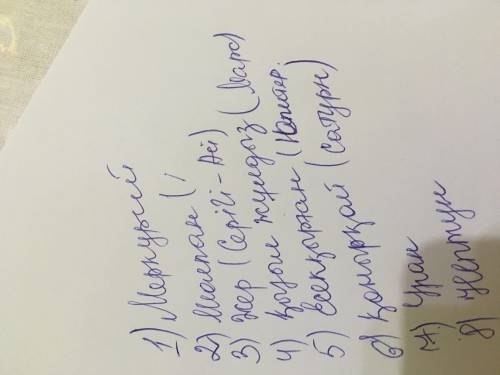 1) Меркурий
2) Шолпан (
3) Жер (Серігі - Ай)
4) қызыл жұлдыз (Марс)
5) Есекқырған (Юпитер.
6) қоңырқай (сатурн)
7) Уран
8) Нептун